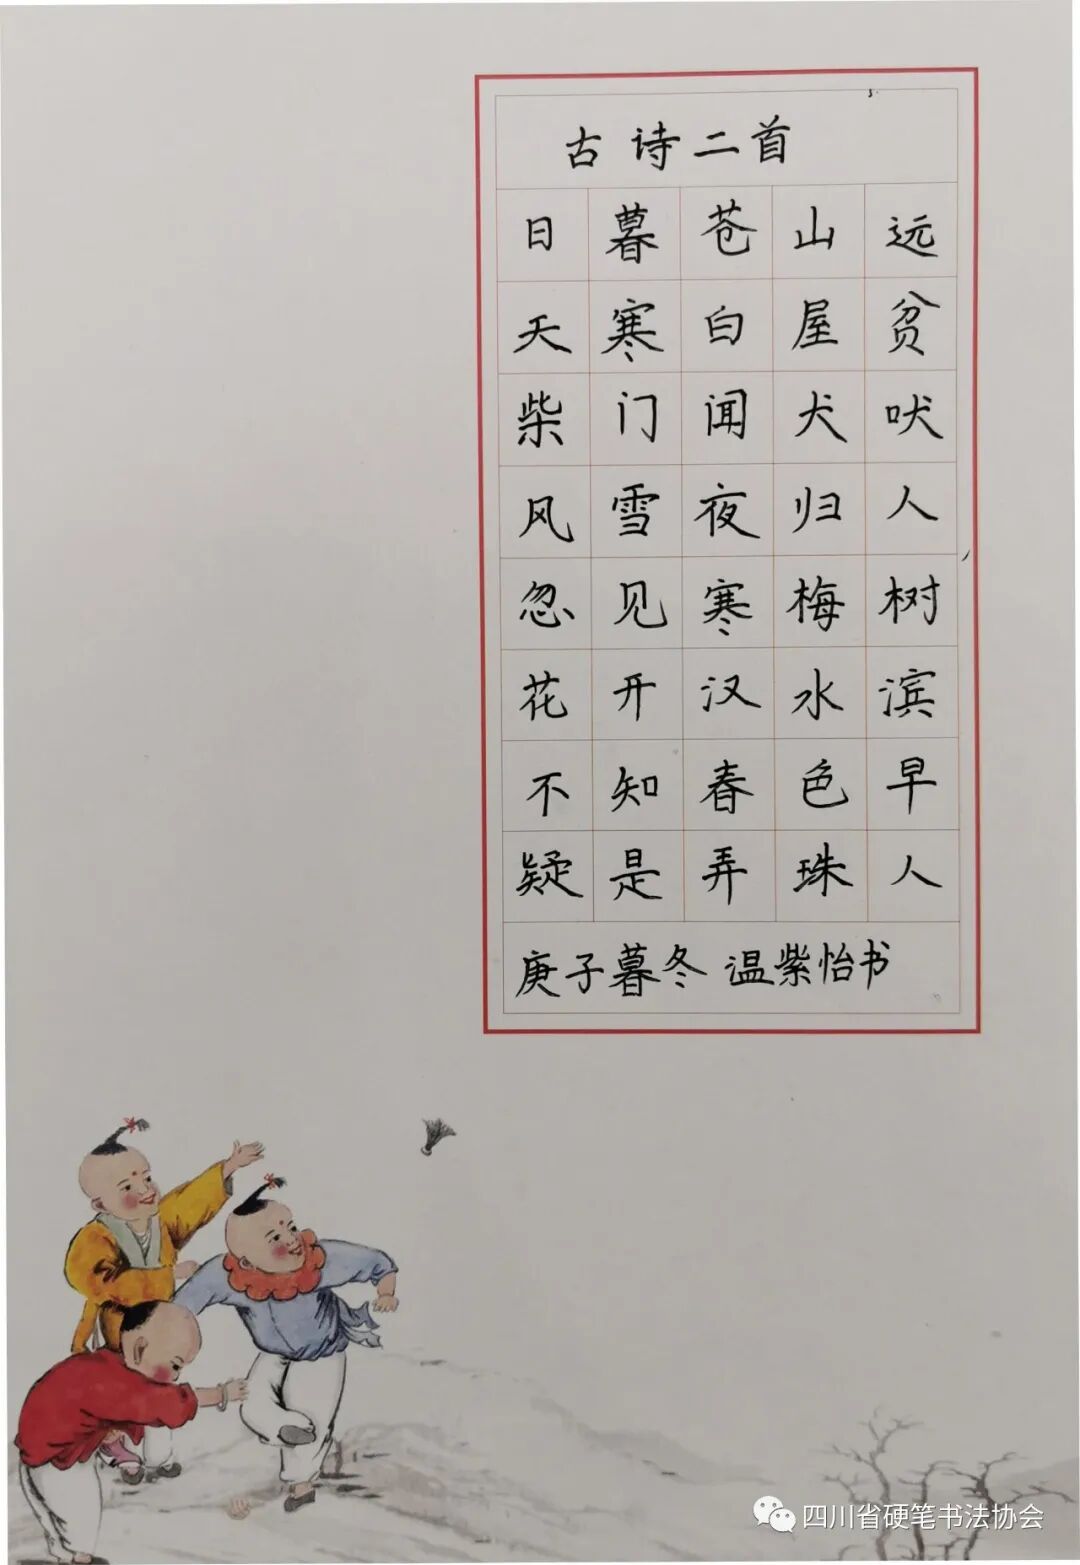 古诗二首
日暮苍山远
天寒白屋贫
柴门闻犬吠
风雪夜归人
忽见寒梅树
花开汉水滨
不知春色早
疑是弄珠人
庚子暮冬 温紫怡书
四川省硬笔书法协会